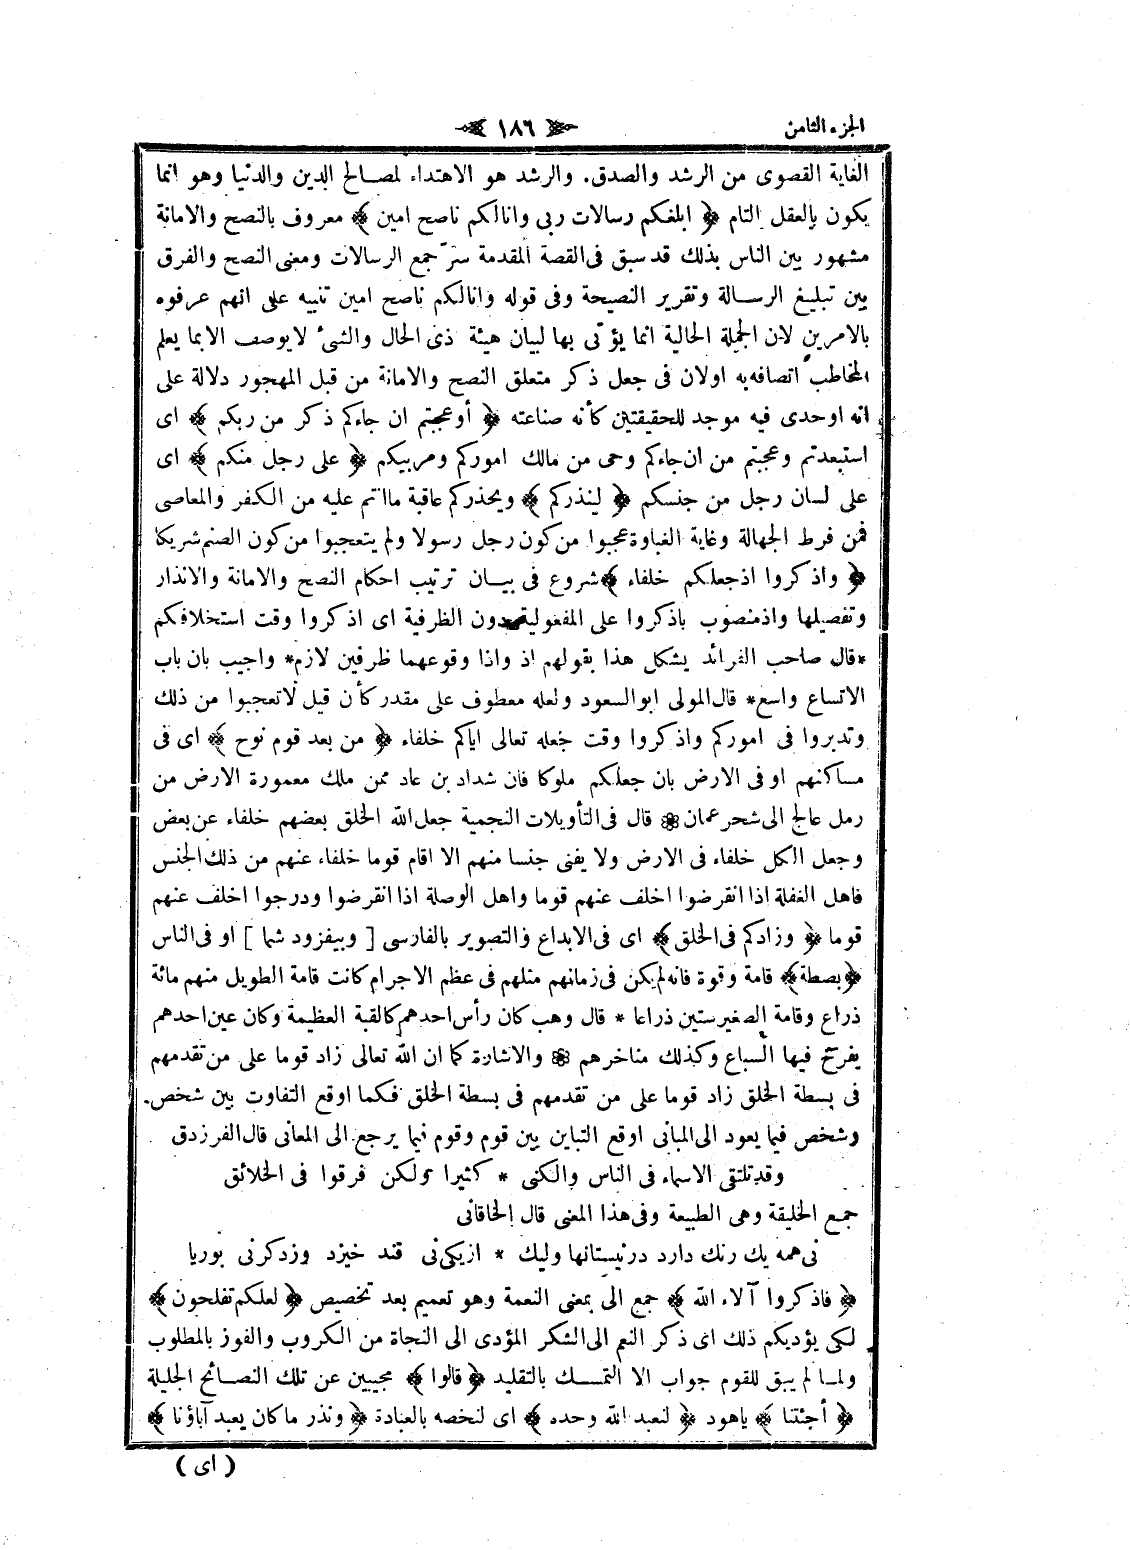 الجزء الثامن ١٨٦
الغاية القصوى من الرشد والصدق. والرشد هو الاهتداء لمصالح الدين والدنيا وهو انما
يكون بالعقل التام ﴿ ابلغكم رسالات ربى وانالكم ناصح امين ﴾ معروف بالنصح والامانة
مشهور بين الناس بذلك قد سبق فى القصة المقدمة سرّ جمع الرسالات ومعنى النصح والفرق
بين تبليغ الرسالة وتقرير النصيحة وفى قوله وانالكم ناصح امين تنبيه على انهم عرفوه
بالامرين لان الجملة الحالية انما يؤتى بها لبيان هيئة ذى الحال والشئ لا يوصف الا بما يعلم
المخاطب اتصافه به اولان فى جعل ذكر متعلق النصح والامانة من قبل المهجور دلالة على
انه اوحدى فيه موجد للحقيقتين كأنه صناعته ﴿ أوعجبتم ان جاءكم ذكر من ربكم ﴾ اى
استبعدتم وعجبتم من ان جاءكم وحى من مالك اموركم ومربيكم ﴿ على رجل منكم ﴾ اى
على لسان رجل من جنسكم ﴿ لينذركم ﴾ ويحذركم عاقبة ما انتم عليه من الكفر والمعاصى
فمن فرط الجهالة وغاية الغباوة عجبوا من كون رجل رسولا ولم يتعجبوا من كون الصنم شريكا
﴿ واذكروا اذ جعلكم خلفاء ﴾ شروع فى بيان ترتيب احكام النصح والامانة والانذار
وتفصيلها واذ منصوب باذكروا على المفعولية دون الظرفية اى اذكروا وقت استخلافكم
*قال صاحب الفرائد يشكل هذا بقولهم اذ واذا وقوعهما ظرفين لازم* واجيب بان باب
الاتساع واسع* قال المولى ابو السعود ولعله معطوف على مقدر كأن قيل لا تعجبوا من ذلك
وتدبروا فى اموركم واذكروا وقت جعله تعالى اياكم خلفاء ﴿ من بعد قوم نوح ﴾ اى فى
مساكنهم او فى الارض بان جعلكم ملوكا فان شداد بن عاد ممن ملك معمورة الارض من
رمل عالج الى شحر عمان ❁ قال فى التأويلات النجمية جعل الله الخلق بعضهم خلفاء عن بعض
وجعل الكل خلفاء فى الارض ولا يفنى جنسا منهم الا اقام قوما خلفاء عنهم من ذلك الجنس
فاهل الغفلة اذا انقرضوا اخلف عنهم قوما واهل الوصلة اذا انقرضوا ودرجوا اخلف عنهم
قوما ﴿ وزادكم فى الخلق ﴾ اى فى الابداع والتصوير بالفارسى [ وبيفزود شما ] او فى الناس
﴿ بصطة ﴾ قامة وقوة فانه لم يكن فى زمانهم مثلهم فى عظم الاجرام كانت قامة الطويل منهم مائة
ذراع وقامة الصغير ستين ذراعا * قال وهب كان رأس احدهم كالقبة العظيمة وكان عين احدهم
يفرخ فيها السباع وكذلك مناخرهم ❁ والاشارة كما ان الله تعالى زاد قوما على من تقدمهم
فى بسطة الخلق زاد قوما على من تقدمهم فى بسطة الخلق فكما اوقع التفاوت بين شخص
وشخص فيما يعود الى المبانى اوقع التباين بين قوم وقوم فيما يرجع الى المعانى قال الفرزدق
وقد تلتقى الاسماء فى الناس والكنى * كثيرا ولكن فرقوا فى الخلائق
جمع الخليقة وهى الطبيعة وفى هذا المعنى قال الخاقانى
نى همه يك رنك دارد در نيستانها وليك * از يكى نى قند خيزد وز دكر نى بوريا
﴿ فاذكروا آلاء الله ﴾ جمع الى بمعنى النعمة وهو تعميم بعد تخصيص ﴿ لعلكم تفلحون ﴾
لكى يؤديكم ذلك اى ذكر النعم الى الشكر المؤدى الى النجاة من الكروب والفوز بالمطلوب
ولما لم يبق للقوم جواب الا التمسك بالتقليد ﴿ قالوا ﴾ مجيبين عن تلك النصائح الجليلة
﴿ أجئتنا ﴾ ياهود ﴿ لنعبد الله وحده ﴾ اى لنخصه بالعبادة ﴿ ونذر ما كان يعبد آباؤنا ﴾
( اى )